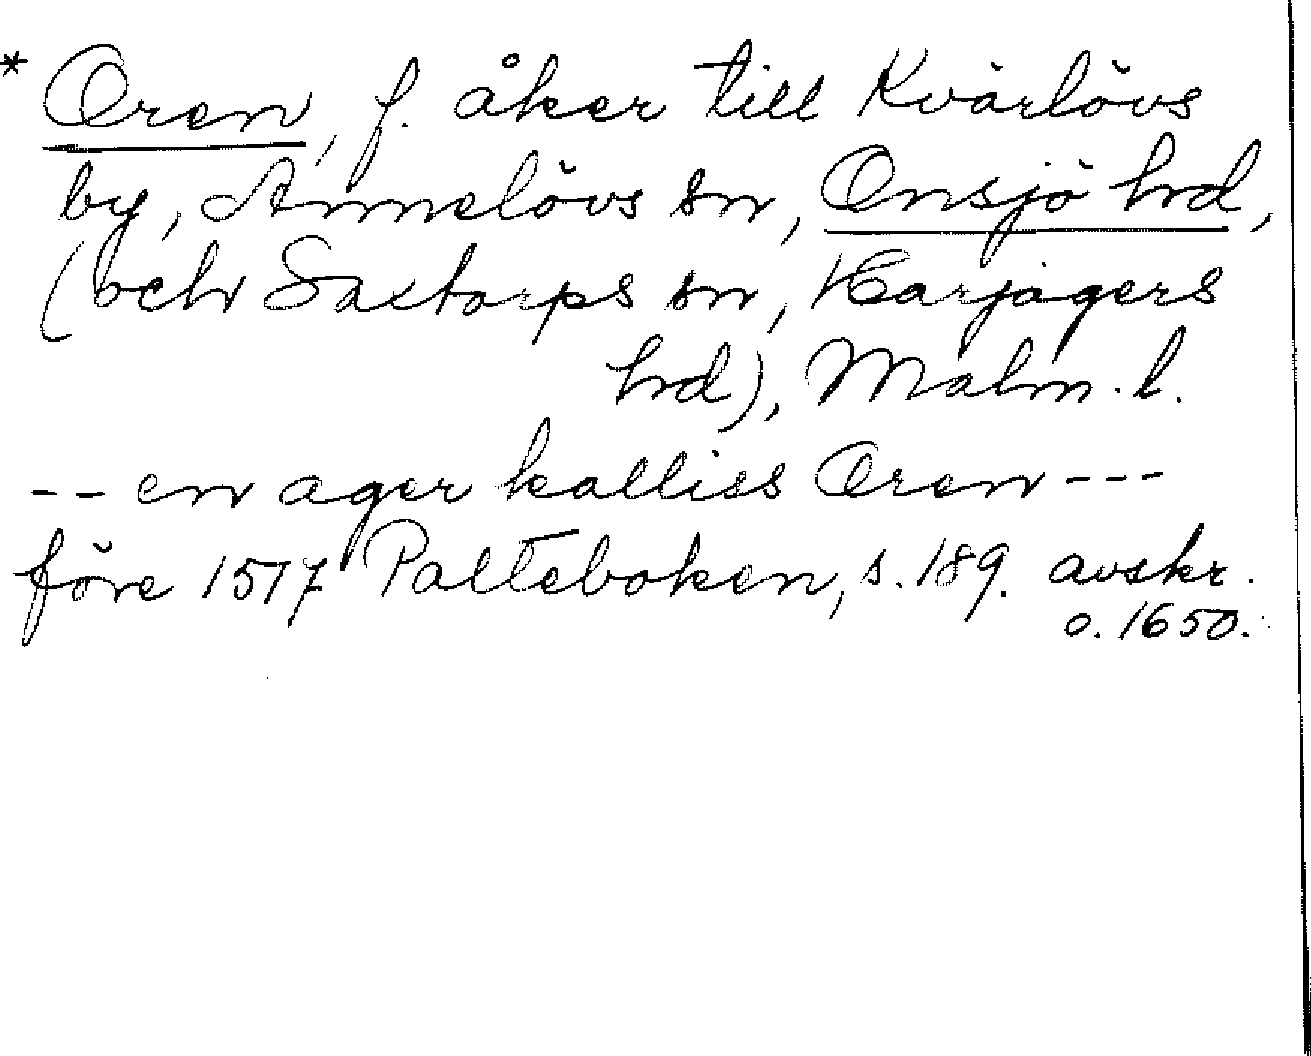 * Oren, f. åker till Kvärlövs
by, Annelövs sn, Onsjö hrd,
(och Saxtorps sn, Harjagers
hrd), Malm. l.
-- en ager kalliss Oren ---
före 1517 Palteboken, s. 189. avskr.
o. 1650.